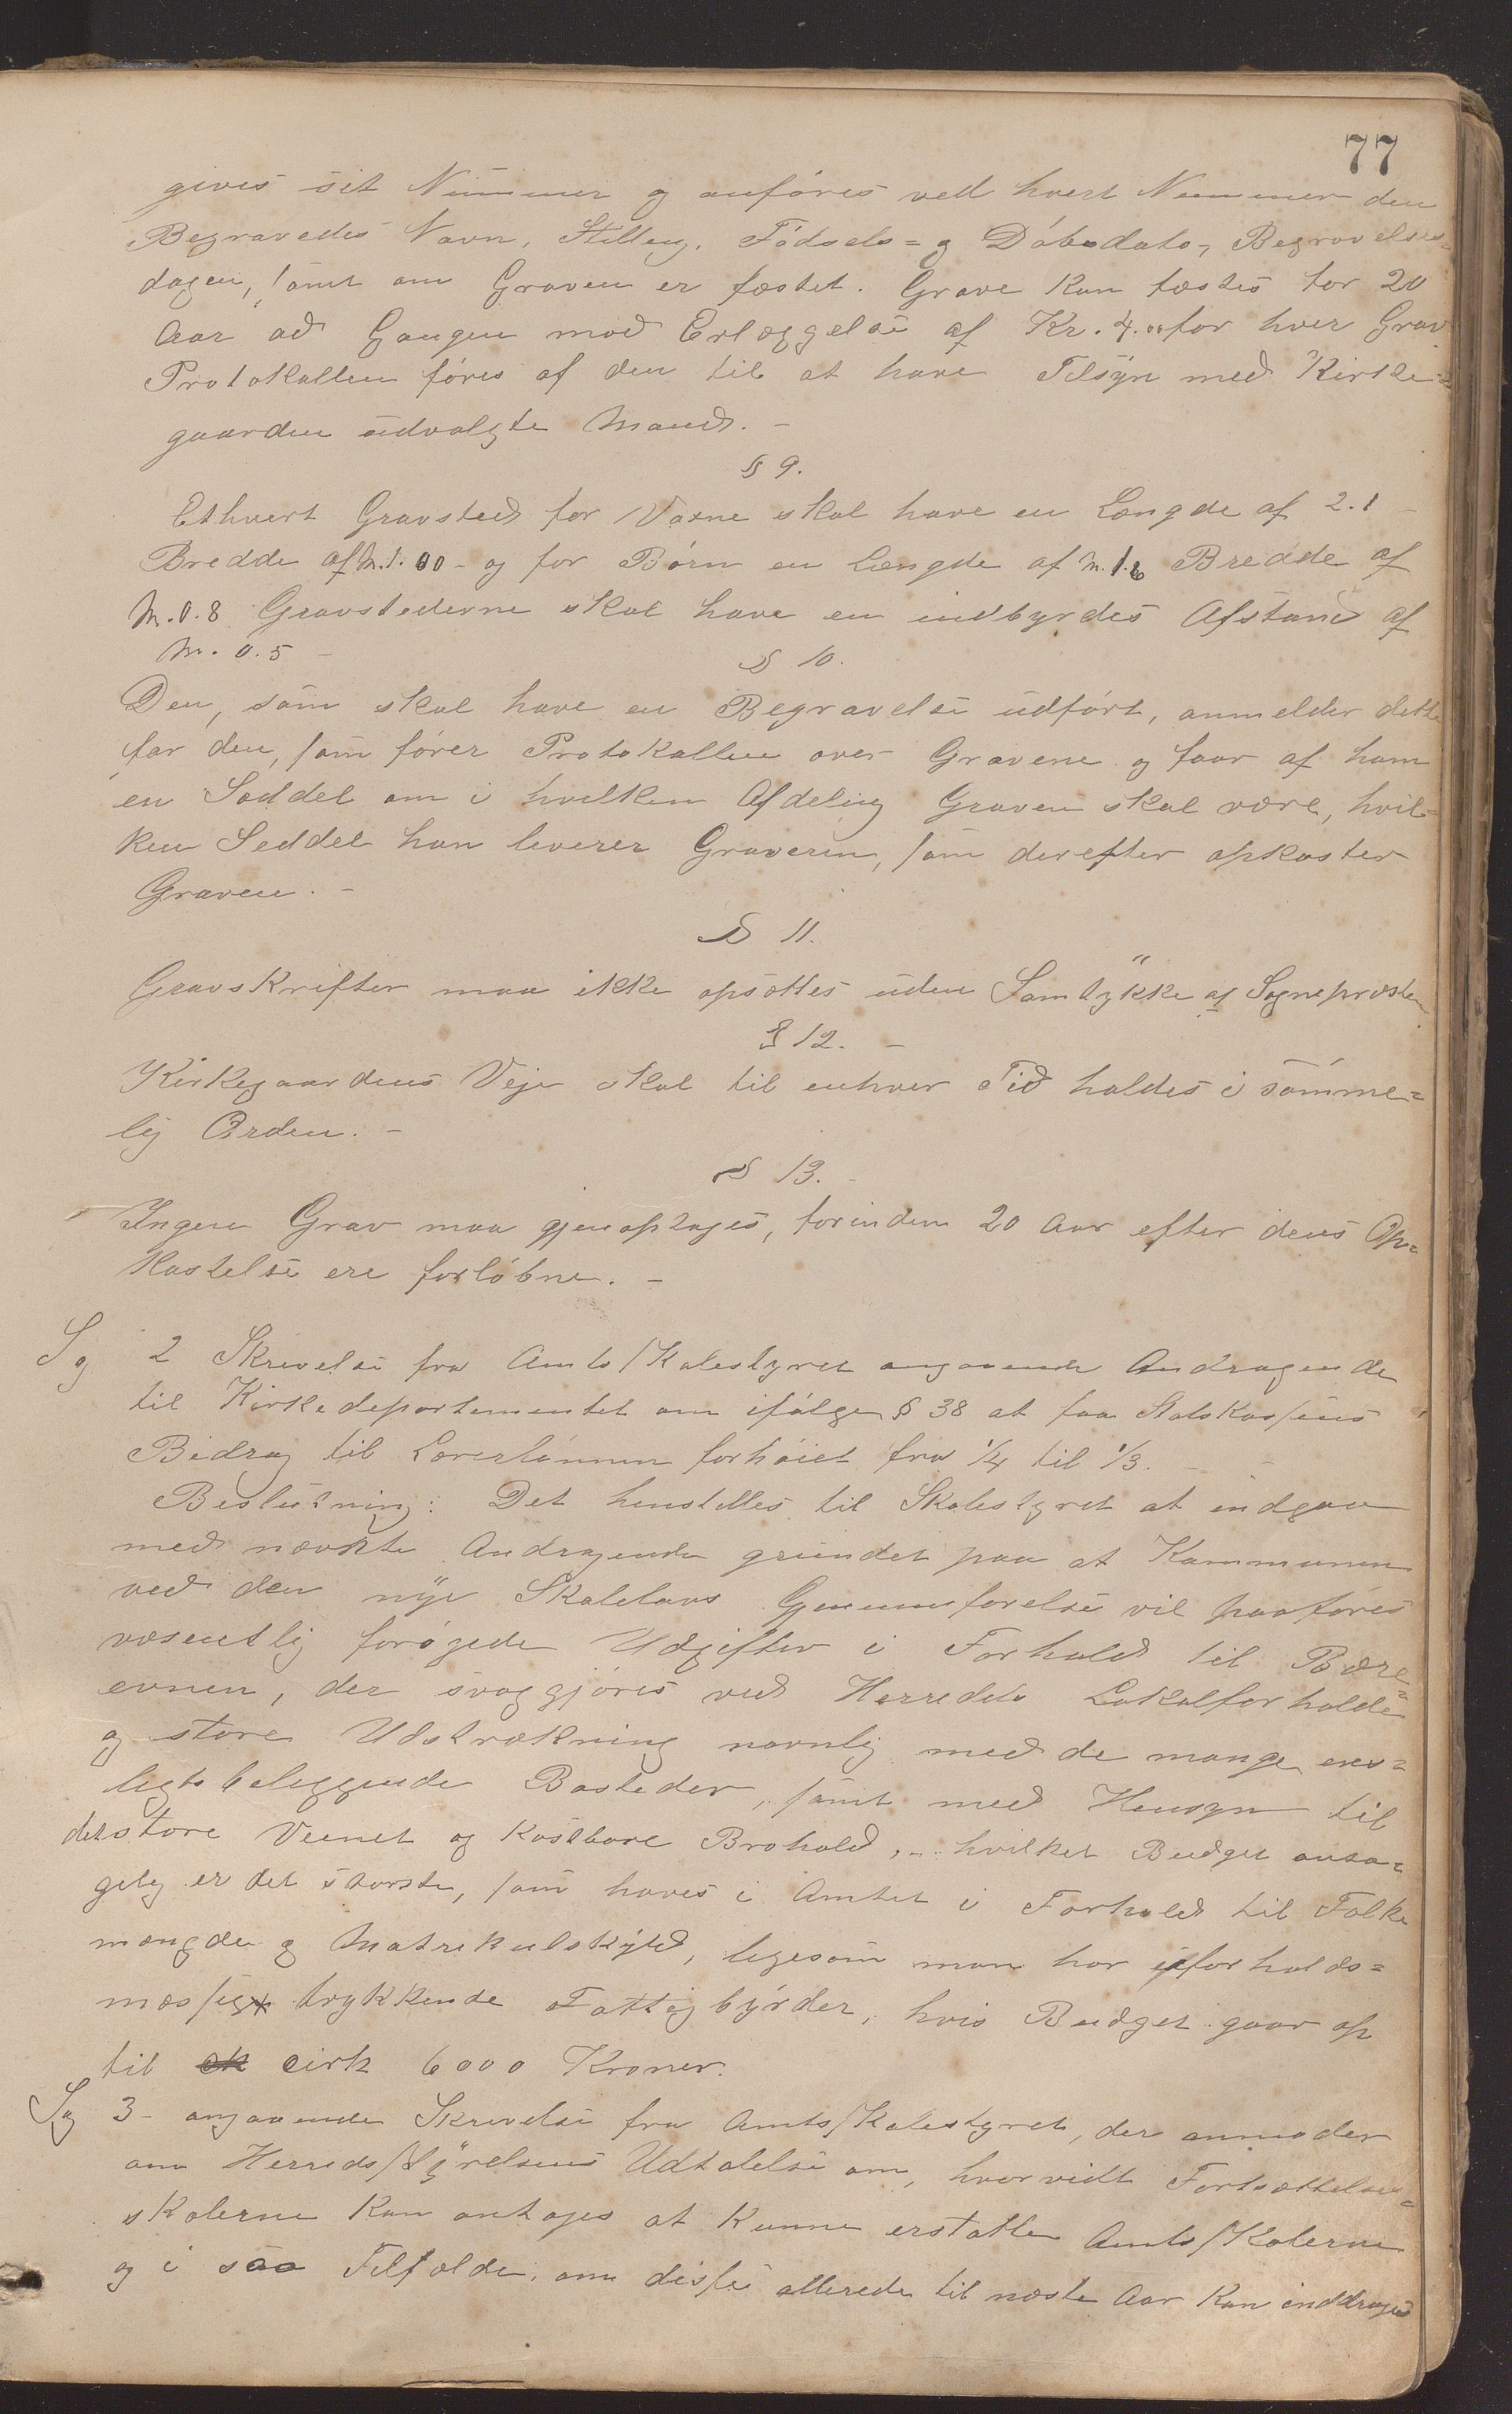 77
gives sit Nummer og anføres ved hvert Nummer den
Begravedes Navn, Stilling, Fødsels= og Dåbsdato, Begravelses=
dagen, samt om Graven er fæstet. Grave kan fæstes for 20
Aar ad Gangen mod Erlæggelse af Kr. 4.00 for hver Grav
Protokollen føres af den til at have Tilsyn med Kirke=
gaarden udvalgte Mand. -
§ 9.
Ethvert Gravsted for Voxne skal have en Længde af 2.1
Bredde af M. 1.00 - og for Børn en Længde af M. 1.6 Bredde af
M. 0.8 Gravstederne skal have en indbyrdes Afstand af
M. 0.5 -
§ 10.
Den, som skal have en Begravelse udført, anmelder dette
for den, som fører Protokollen over Gravene og faar af ham
en Seddel om i hvilken Afdeling Graven skal være, hvil=
ken Seddel han leverer Graveren, som derefter opkaster
Graven. -
§ 11.
Gravskrifter maa ikke opsættes uden Samtykke af Sognepræsten.
§ 12. -
Kirkegaardens Veje skal til enhver Tid holdes i sømme=
lig Orden. -
§ 13. -
Ingen Grav maa gjenoptages, forinden 20 Aar efter dens Op=
kastelse ere forløbne. -
Sag 2 Skrivelse fra Amtsskolestyret angaaende Andragende
til Kirkedepartementet om ifølge § 38 at faa Statskassens
Bidrag til Lærerlønnen forhøiet fra 1/4 til 1/3. -
Beslutning: Det henstilles til Skolestyret at indgaa
med nævnte Andragende grundet paa at Kommunen
ved den nye Skolelovs Gjennemførelse vil paaføres
væsentlig forøgede Udgifter i Forhold til Bære=
evnen, der svaggjøres ved Herredets Lokalforholde
og store Udstrækning navnlig med de mange ens=
ligtbeliggende Bosteder, samt med Hensyn til
det store Veinet og kostbare Brohold, - hvilket Budget anta=
gelig er det største, som haves i Amtet i Forhold til Folke
mængde og Matrikulskyld, ligesom man har uforholds=
mæssig trykkende Fattigbyrder, hvis Budget gaar op
til cirk 6000 Kroner.
Sag 3 - angaaende Skrivelse fra Amtsskolestyret, der anmoder
om Herredsstyrelsens Udtalelse om, hvorvidt Fortsættelses=
skolerne kan antages at kunne erstatte Amtsskolerne
og i saa Tilfælde, om disse allerede til næste Aar kan inddrages